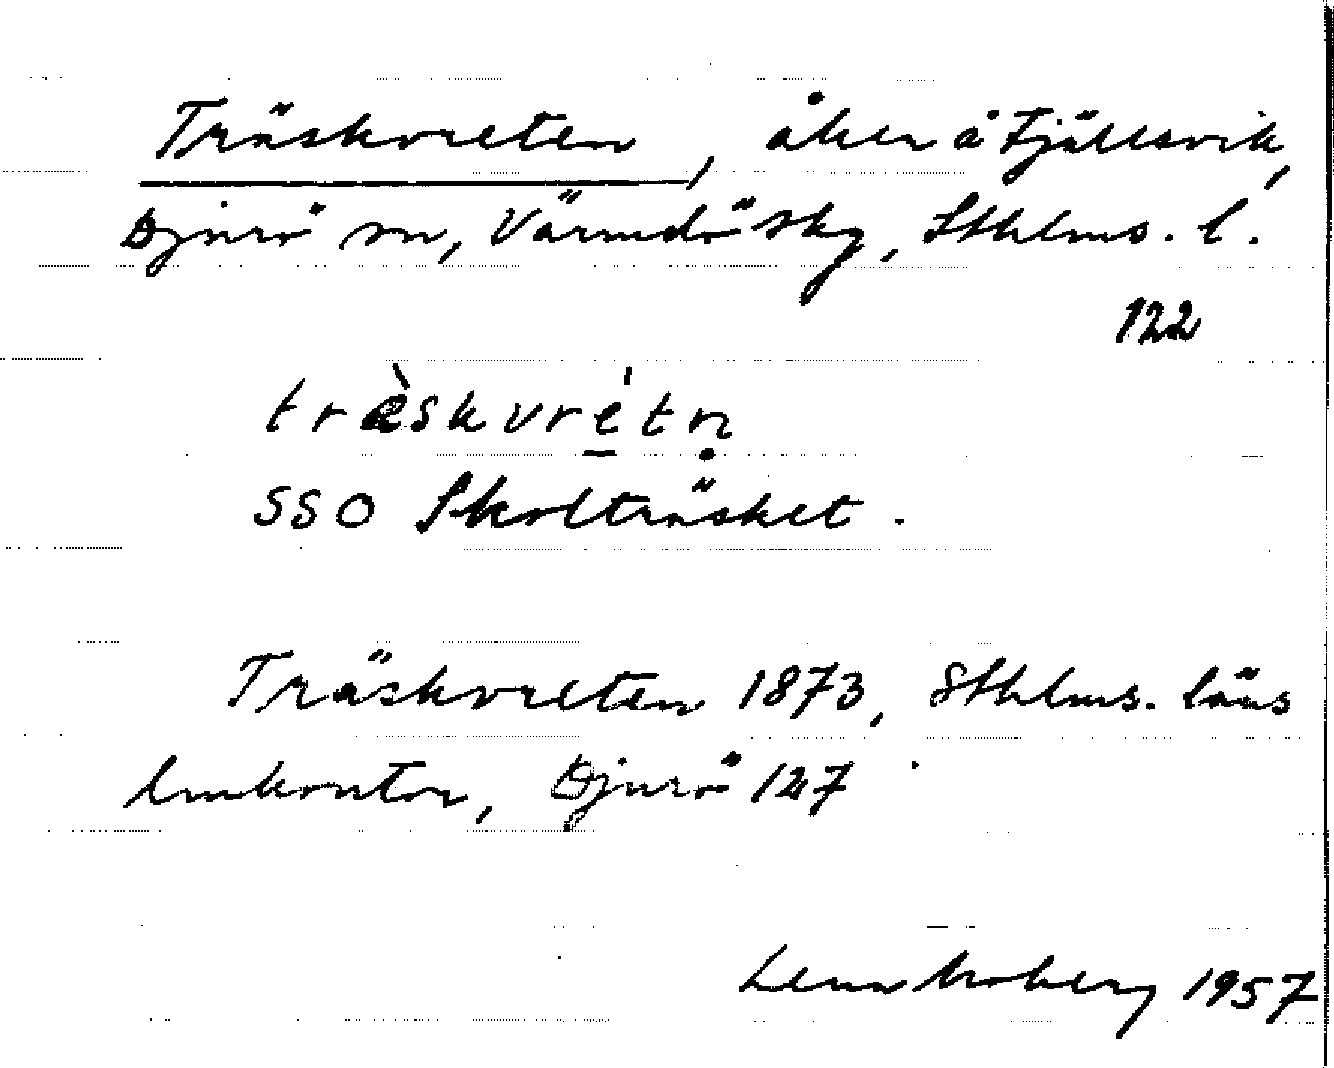 Träskvreten, åker å Fjällsvik,
Djurö sn, Värmdö skg, Sthlms. l.
122
træ̀skvré̱tṇ
SSO Skolträsket.
Träskvreten 1873, Sthlms. läns
lmkontor, Djurö 127
Lena Moberg 1957